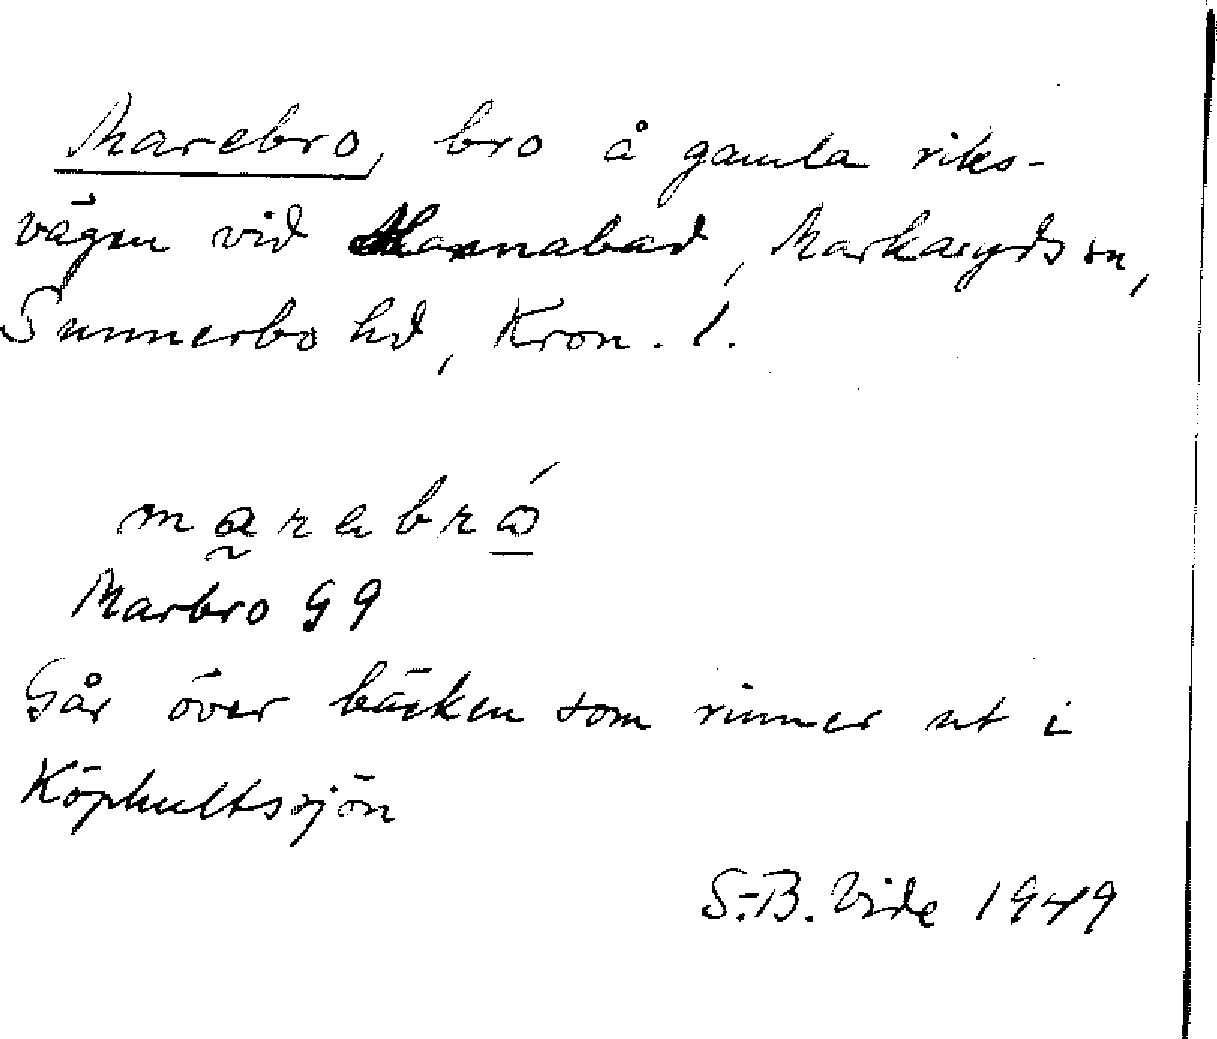 Marebro, bro å gamla riks-
vägen vid Hannabad, Markaryds sn,
Sunnerbo hd, Kron. l.
marabró
Marbro G9
Går över bäcken som rinner ut i
Köphultssjön
S.-B. Vide 1949